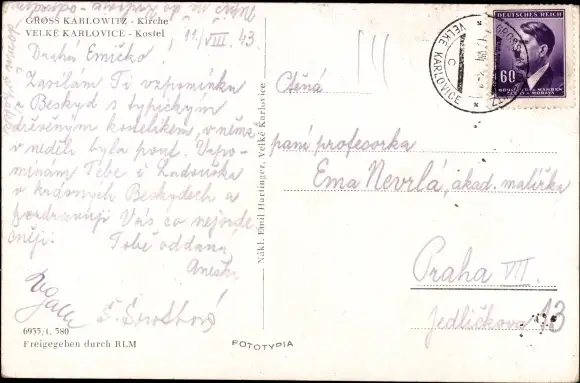 GROSS KARLOWITZ - Kirche
VELKÉ KARLOVICE - Kostel
11/VIII. 43
Drahá Emičko!
Zasílám Ti vzpomínku
z Beskyd s typickým
dřevěným kostelíkem, v němž
v neděli byla pout. Vzpo-
mínám Tebe i Ladouška
v krásných Beskydech a
pozdravuji Vás co nejsrde-
čněji.
Tobě oddaná
Anešk
6935/1, 580
Freigegeben durch RLM
Nákl. Emil Hartinger, Velké Karlovice
FOTOTYPIA
DEUTSCHES REICH
60
BÖHMEN UND MÄHREN
ČECHY A MORAVA
VELKÉ KARLOVICE
GROSS
C
Ctěná
paní profesorka
Ema Nevrlá, akad. malířka
Praha VII.
Jedličkova 13